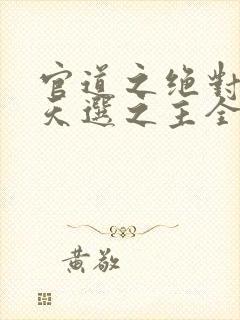 官道之绝對
天選之主全
黄敬